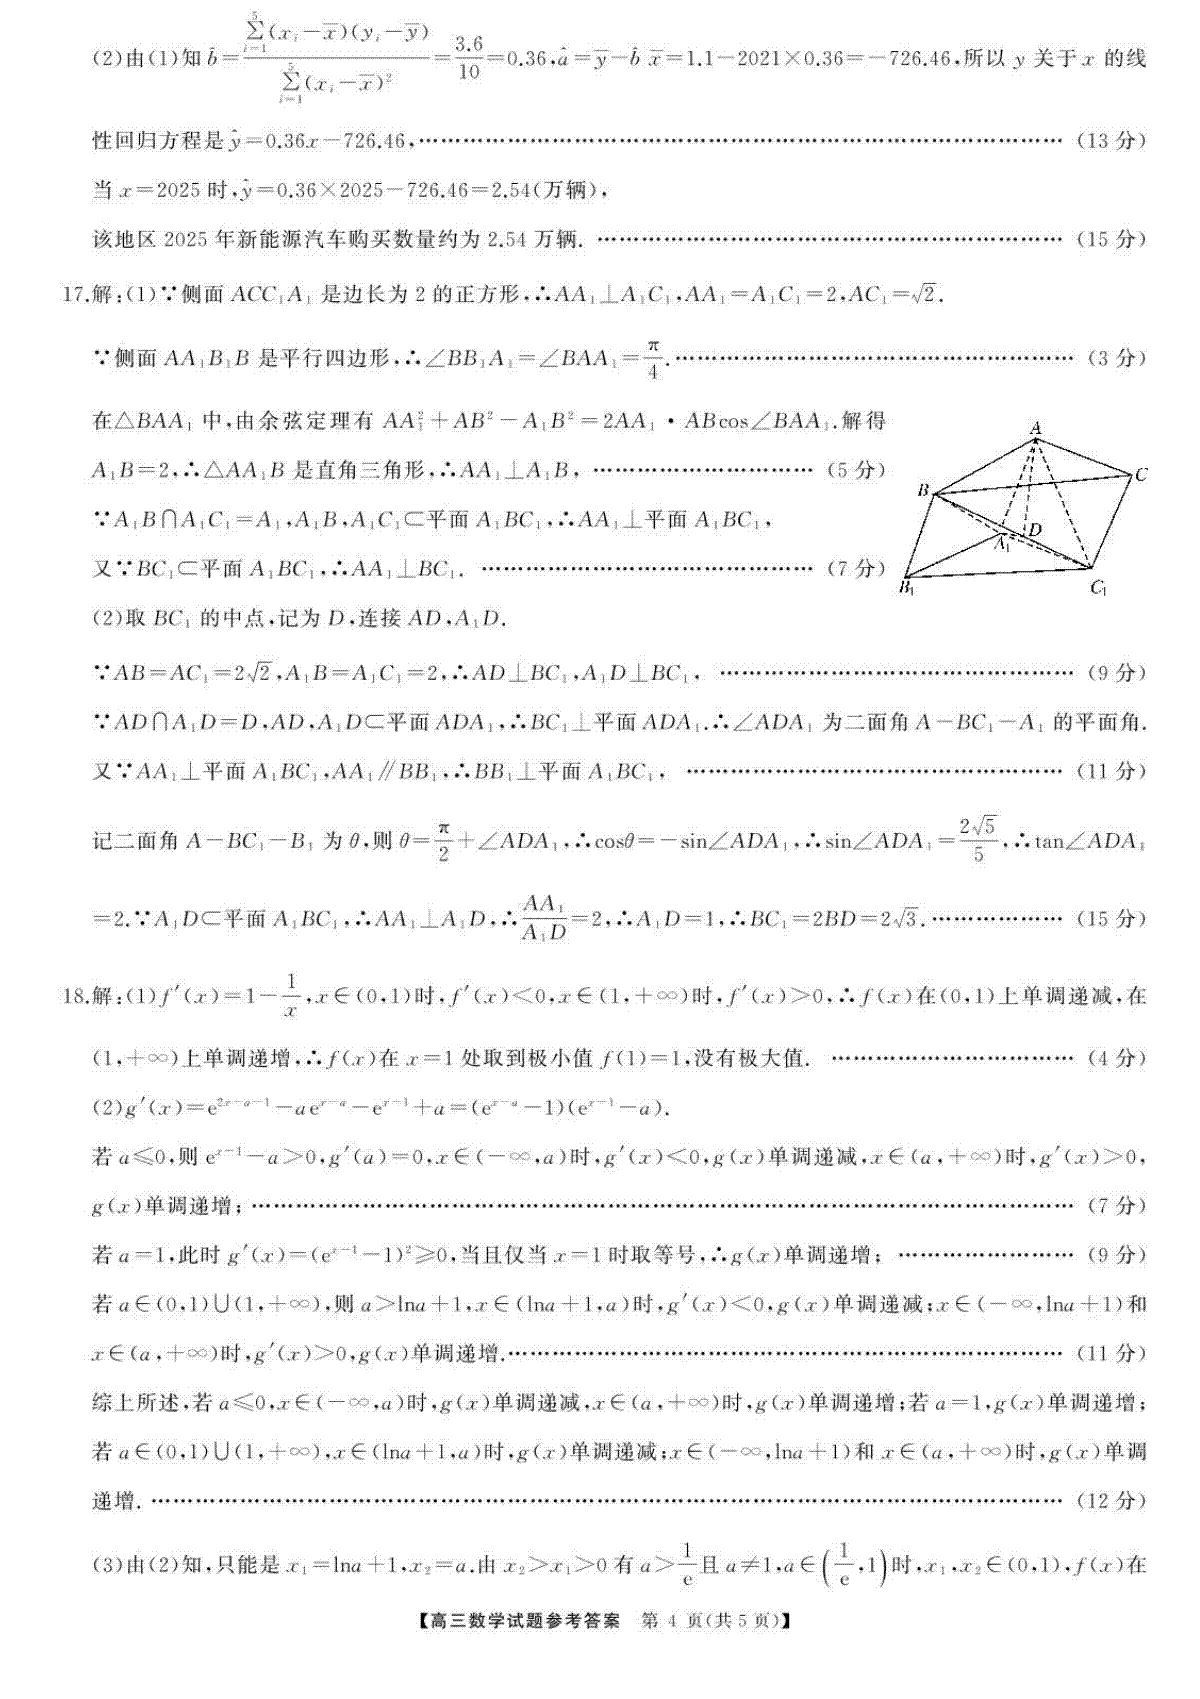 (2)由(1)知 b̂=∑(i=1→5)(xᵢ−x̄)(yᵢ−ȳ)/∑(i=1→5)(xᵢ−x̄)²=3.6/10=0.36,â=ȳ−b̂ x̄=1.1−2021×0.36=−726.46,所以 y 关于 x 的线
性回归方程是 ŷ=0.36x−726.46,……………………(13 分)
当 x=2025 时,ŷ=0.36×2025−726.46=2.54(万辆),
该地区 2025 年新能源汽车购买数量约为 2.54 万辆. ……………………(15 分)
17.解:(1)∵侧面 ACC₁A₁ 是边长为 2 的正方形,∴AA₁⊥A₁C₁,AA₁=A₁C₁=2,AC₁=√2.
∵侧面 AA₁B₁B 是平行四边形,∴∠BB₁A₁=∠BAA₁=π/4.……………………(3 分)
在△BAA₁ 中,由余弦定理有 AA₁²+AB²−A₁B²=2AA₁·ABcos∠BAA₁.解得
A₁B=2,∴△AA₁B 是直角三角形,∴AA₁⊥A₁B, ……………………(5 分)
∵A₁B∩A₁C₁=A₁,A₁B,A₁C₁⊂平面 A₁BC₁,∴AA₁⊥平面 A₁BC₁,
又∵BC₁⊂平面 A₁BC₁,∴AA₁⊥BC₁. ……………………(7 分)
A
B
C
D
A₁
B₁
C₁
(2)取 BC₁ 的中点,记为 D,连接 AD,A₁D.
∵AB=AC₁=2√2,A₁B=A₁C₁=2,∴AD⊥BC₁,A₁D⊥BC₁, ……………………(9 分)
∵AD∩A₁D=D,AD,A₁D⊂平面 ADA₁,∴BC₁⊥平面 ADA₁.∴∠ADA₁ 为二面角 A−BC₁−A₁ 的平面角.
又∵AA₁⊥平面 A₁BC₁,AA₁∥BB₁,∴BB₁⊥平面 A₁BC₁, ……………………(11 分)
记二面角 A−BC₁−B₁ 为 θ,则 θ=π/2+∠ADA₁,∴cosθ=−sin∠ADA₁,∴sin∠ADA₁=2√5/5,∴tan∠ADA₁
=2.∵A₁D⊂平面 A₁BC₁,∴AA₁⊥A₁D,∴AA₁/A₁D=2,∴A₁D=1,∴BC₁=2BD=2√3.………………(15 分)
18.解:(1)f′(x)=1−1/x,x∈(0,1)时,f′(x)<0,x∈(1,+∞)时,f′(x)>0,∴f(x)在(0,1)上单调递减,在
(1,+∞)上单调递增,∴f(x)在 x=1 处取到极小值 f(1)=1,没有极大值. ……………………(4 分)
(2)g′(x)=e^(2x−a−1)−ae^(x−a)−e^(x−1)+a=(e^(x−a)−1)(e^(x−1)−a).
若 a≤0,则 e^(x−1)−a>0,g′(a)=0,x∈(−∞,a)时,g′(x)<0,g(x)单调递减,x∈(a,+∞)时,g′(x)>0,
g(x)单调递增;……………………(7 分)
若 a=1,此时 g′(x)=(e^(x−1)−1)²≥0,当且仅当 x=1 时取等号,∴g(x)单调递增; ……………………(9 分)
若 a∈(0,1)∪(1,+∞),则 a>lna+1,x∈(lna+1,a)时,g′(x)<0,g(x)单调递减;x∈(−∞,lna+1)和
x∈(a,+∞)时,g′(x)>0,g(x)单调递增.……………………(11 分)
综上所述,若 a≤0,x∈(−∞,a)时,g(x)单调递减,x∈(a,+∞)时,g(x)单调递增;若 a=1,g(x)单调递增;
若 a∈(0,1)∪(1,+∞),x∈(lna+1,a)时,g(x)单调递减;x∈(−∞,lna+1)和 x∈(a,+∞)时,g(x)单调
递增. ……………………(12 分)
(3)由(2)知,只能是 x₁=lna+1,x₂=a.由 x₂>x₁>0 有 a>1/e且 a≠1,a∈(1/e,1)时,x₁,x₂∈(0,1),f(x)在
【高三数学试题参考答案 第 4 页(共 5 页)】